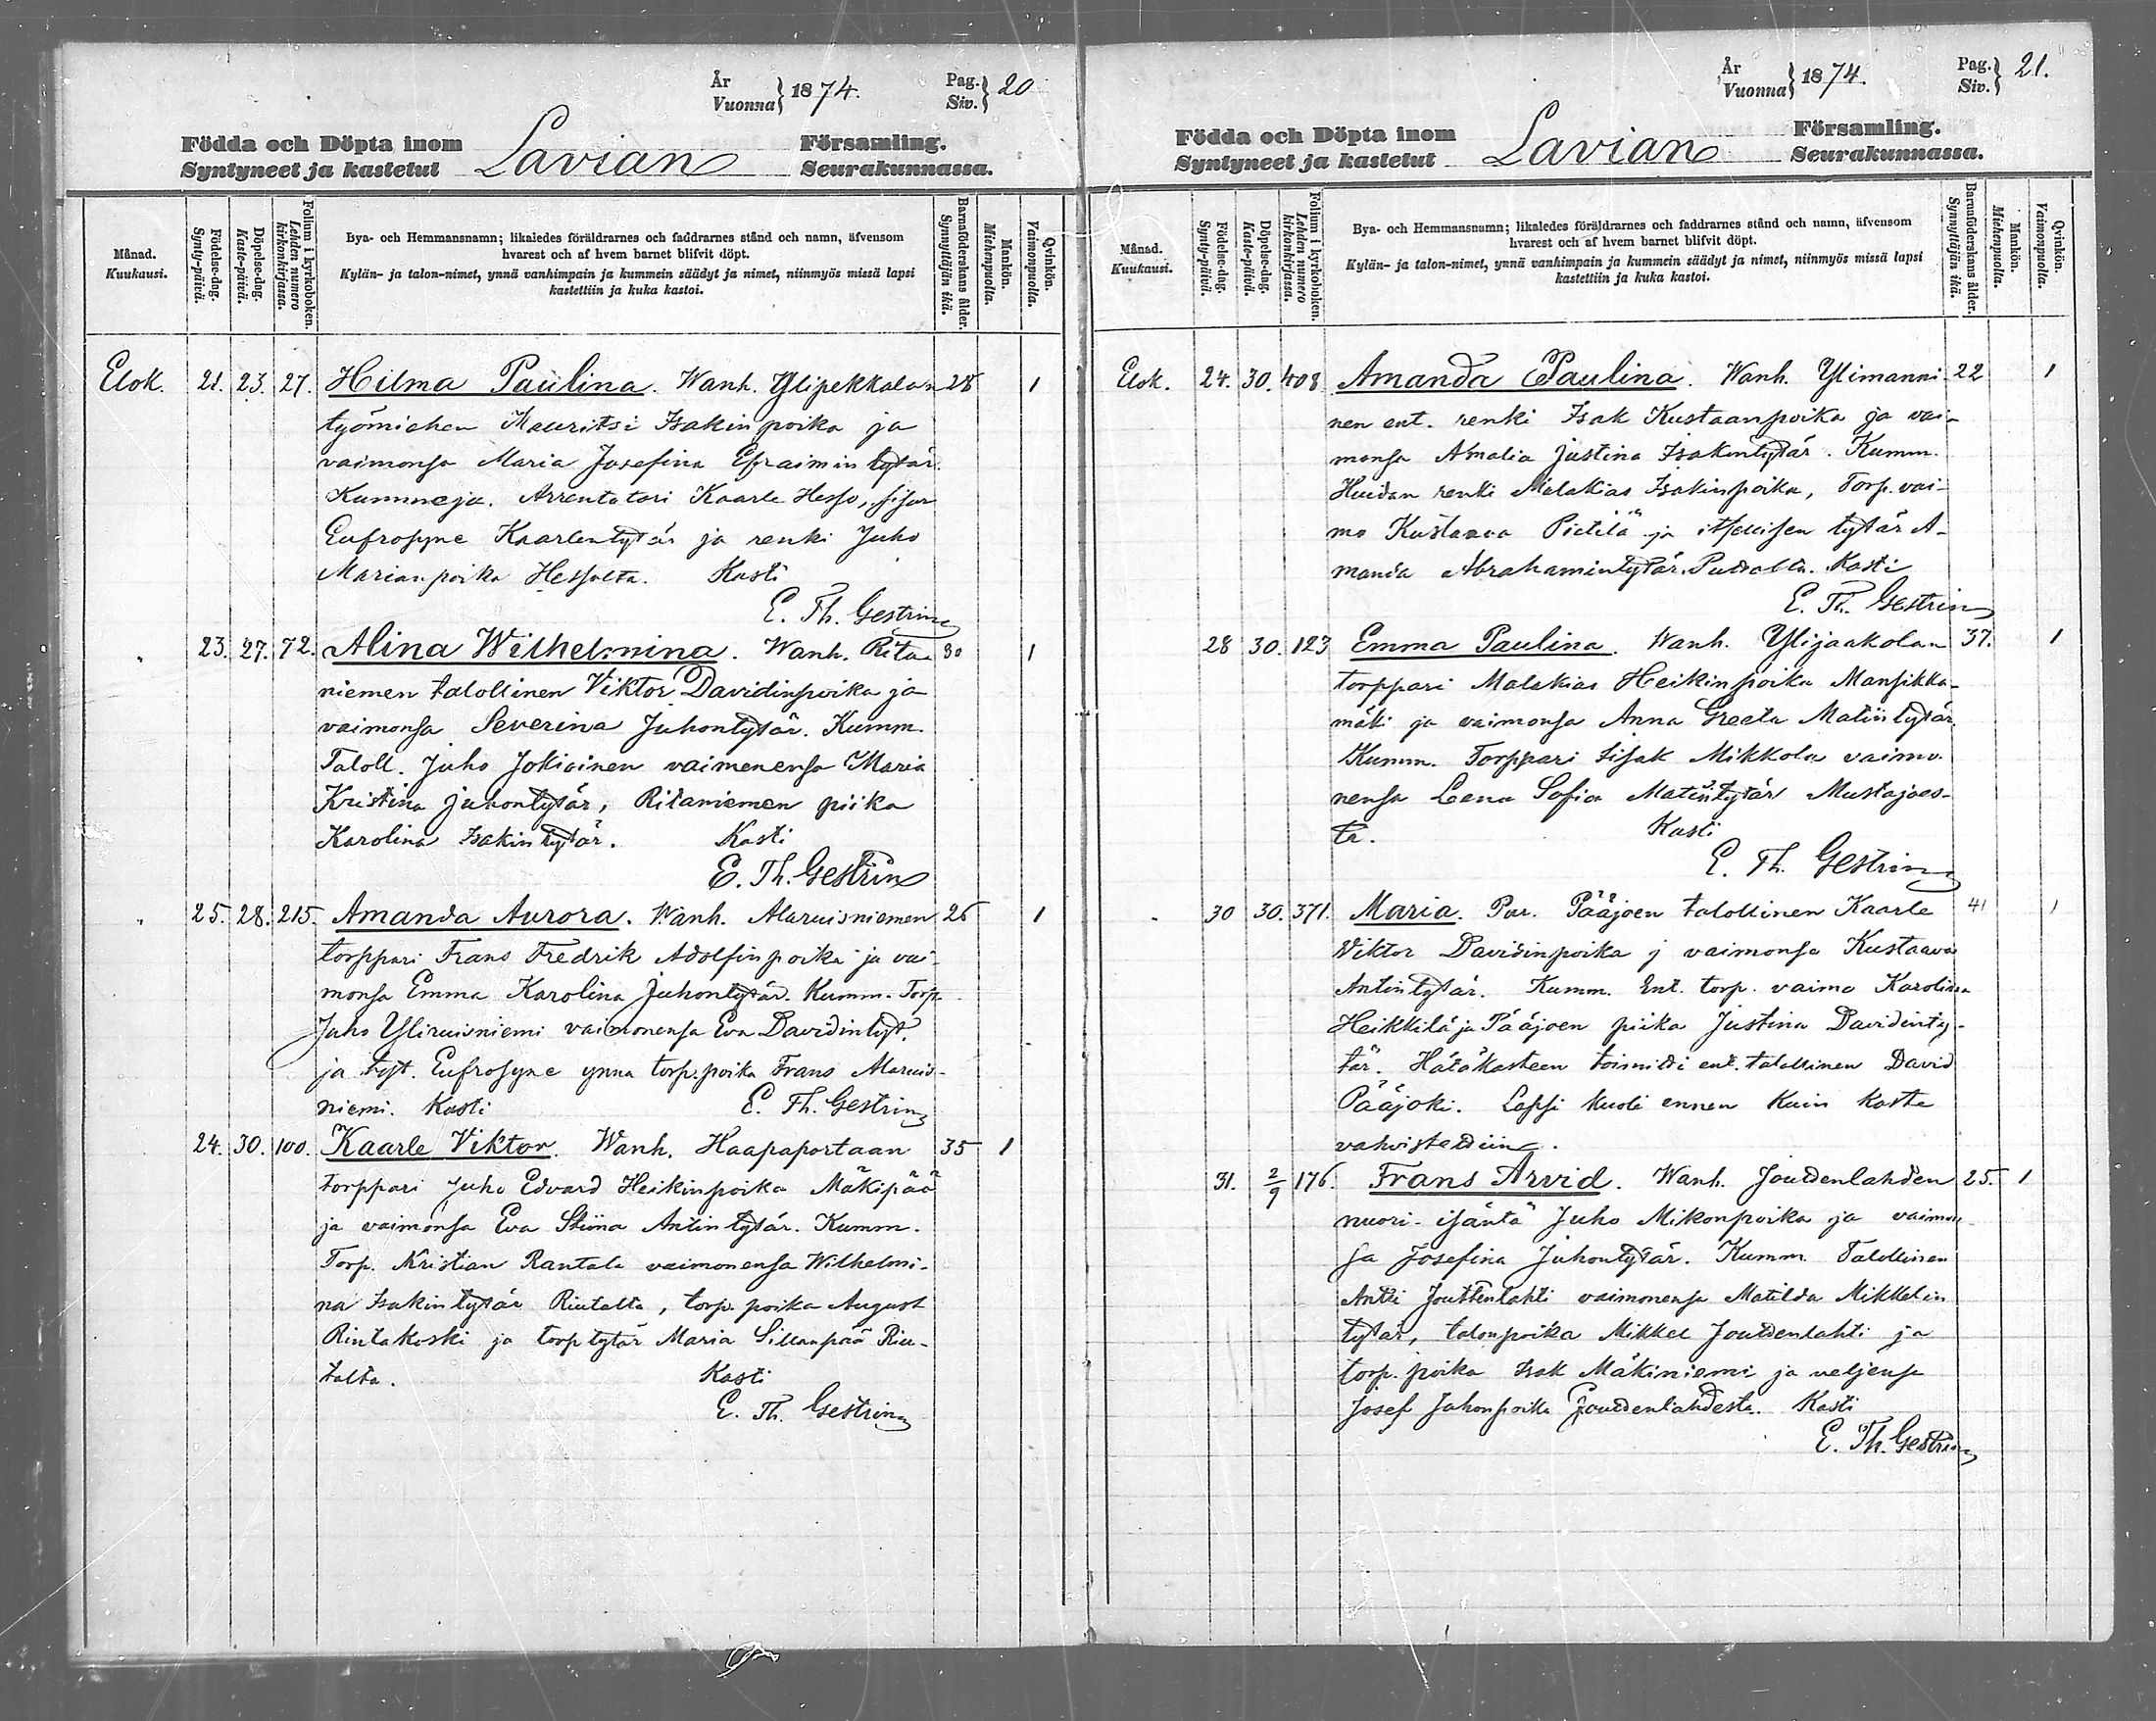 År
Vuonna} 1874.
Pag.
Siv.} 20
Födda och Döpta inom
Syntyneet ja kastetut
Lavian
Församling.
Seurakunnassa.
Månad.
Kuukausi.
Födelse-dag.
Synty-päivä.
Döpelse-dag.
Kaste-päivä.
Folium i kyrkoboken.
Lehden numero kirkonkirjassa.
Bya- och Hemmansnamn; likaledes föräldrarnes och faddrarnes stånd och namn, äfvensom
hvarest och af hvem barnet blifvit döpt.
Kylän- ja talon-nimet, ynnä vanhimpain ja kummein säädyt ja nimet, niinmyös missä lapsi
kastettiin ja kuka kastoi.
Barnaföderskans ålder.
Synnyttäjän ikä.
Mankön.
Miehenpuolta.
Qvinkön.
Vaimonpuolta.
Elok. 21. 23. 27. Hilma Paulina. Wanh. Ylipekkalan 28 1
työmiehen Mauritsi Isakinpoika ja
vaimonsa Maria Josefina Efraimintytär.
Kummeja. Arrentatori Kaarle Hesso, sisar
Eufrosyne Kaarlentytär ja renki Juho
Marianpoika Hessolta. Kasti
E. Th. Gestrin
" 23. 27. 72. Alina Wilhelmina. Wanh. Rita- 30 1
niemen talollinen Viktor Davidinpoika ja
vaimonsa Severina Juhontytär. Kumm.
Taloll. Juho Jokioinen vaimonensa Maria
Kristina Juhontytär, Ritaniemen piika
Karolina Isakintytär. Kasti
E. Th. Gestrin
" 25. 28. 215. Amanda Aurora. Wanh. Alaruisniemen 26 1
torppari Frans Fredrik Adolfinpoika ja vai-
monsa Emma Karolina Juhontytär. Kumm. Torp.
Juho Yliruisniemi vaimonensa Eva Davidintyt.
ja tyt. Eufrosyne ynna torp. poika Frans Alaruis-
niemi. Kasti E. Th. Gestrin
24. 30. 100. Kaarle Viktor. Wanh. Haapaportaan 35 1
torppari Juho Edvard Heikinpoika Mäkipää
ja vaimonsa Eva Stiina Antintytär. Kumm.
Torp. Kristian Rantala vaimonensa Wilhelmi-
na Isakintytär Riutalta, torp. poika August
Rintakoski ja torp tytär Maria Sillanpää Riu-
talta. Kasti
E. Th. Gestrin
År
Vuonna} 1874.
Pag.
Siv.} 21.
Födda och Döpta inom
Syntyneet ja kastetut
Lavian
Församling.
Seurakunnassa.
Månad.
Kuukausi.
Födelse-dag.
Synty-päivä.
Döpelse-dag.
Kaste-päivä.
Folium i kyrkoboken.
Lehden numero kirkonkirjassa.
Bya- och Hemmansnamn; likaledes föräldrarnes och faddrarnes stånd och namn, äfvensom
hvarest och af hvem barnet blifvit döpt.
Kylän- ja talon-nimet, ynnä vanhimpain ja kummein säädyt ja nimet, niinmyös missä lapsi
kastettiin ja kuka kastoi.
Barnföderskans ålder.
Synnyttäjän ikä.
Mankön.
Miehenpuolta.
Qvinkön.
Vaimonpuolta.
Elok. 24. 30. 408 Amanda Paulina. Wanh. Ylimanni- 22 1
nen ent. renki Isak Kustaanpoika ja vai-
monsa Amalia Justina Isakintytär. Kumm.
Huidan renki Malakias Isakinpoika, Torp. vai-
mo Kustaava Pietilä ja itsellisen tytär A-
manda Abrahamintytär. Kasti
E. Th. Gestrin
28 30. 123 Emma Paulina. Wanh. Ylijaakolan 37. 1
torppari Malakias Heikinpoika Mansikka-
mäki ja vaimonsa Anna Greeta Matintytär.
Kumm. Torppari Iisak Mikkola vaimo-
nensa Lena Sofia Matintytär Mustajoes-
ta. Kasti
E. Th. Gestrin
" 30 30. 371. Maria. Par. Pääjoen talollinen Kaarle 41 1
Viktor Davidinpoika j vaimonsa Kustaava
Antintytär. Kumm. Ent. torp. vaimo Karolina
Heikkilä ja Pääjoen piika Justina Davidinty-
tär. Hätäkasteen toimitti ent. talollinen David
Pääjoki. Lapsi kuoli ennen kuin kaste
vahvistettiin.
31. 2/9 176. Frans Arvid. Wanh. Joutdenlahden 25. 1
nuori-isäntä Juho Mikonpoika ja vaimon-
sa Josefina Juhontytär. Kumm. Talollinen
Antti Jouttenlahti vaimonensa Matilda Mikkelin
tytär, talonpoika Mikkel Joutdenlahti ja
torp. poika Isak Mäkiniemi ja veljensä
Josef Juhonpoika Joutdenlahdesta. Kasti
E. Th. Gestrin